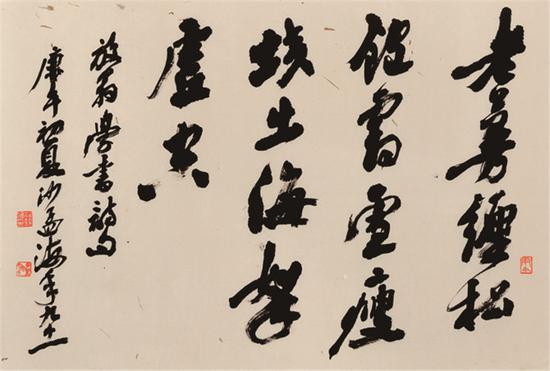 老蔓纏松
飽霜雪瘦
蛟出海拏
虛空
放翁學書詩句
庚午初夏沙孟海年九十一